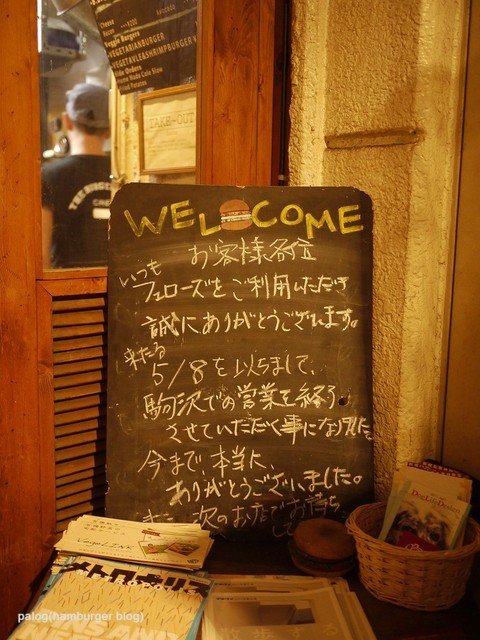 Cheese
Bacon
Veggie Burgers
VEGETARIANBURGER
VEGETAVLE&SHRIMPBURGER
Side Orders
Home Made Cole Slaw
Fried Potatoes
TAKE-OUT
WELCOME
お客様各位
いつも
フェローズをご利用いただき
誠にありがとうございます。
来たる
5/8を以ちまして、
駒沢での営業を終了
させていただく事になりました
今まで、本当に、
ありがとうございました。
また 次のお店でお待ち
して
メトロポリス
palog(hamburger blog)